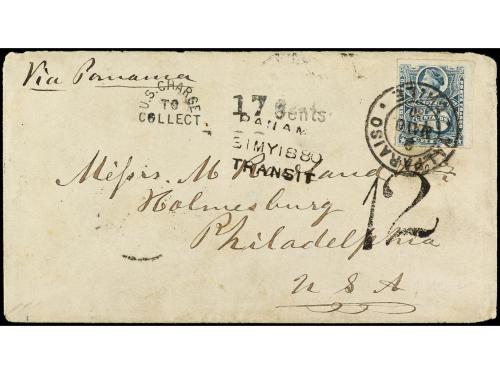 Via Panama
U.S. CHARGE
TO
COLLECT.
17 Cents
PANAM
31MY1880
TRANSIT
VALPARAISO
12
Messrs. M
Holmesburg
Philadelphia
U S A